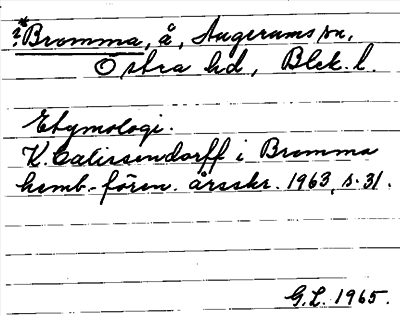 ?*Bromma, å, Augerums sn,
Östra hd, Blek. l.
Etymologi.
K. Calissendorff i Bromma
hemb.-fören. årsskr. 1963, s. 31.
G.L. 1965.